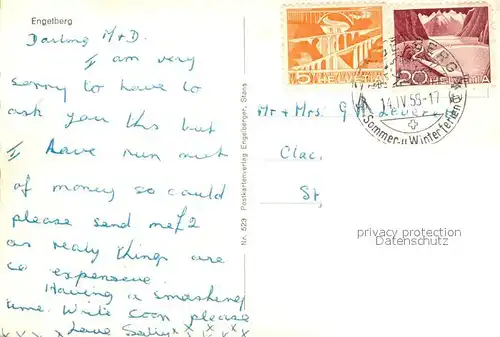 Engelberg
Darling M+D.
I am very
sorry to have to
ask you this but
I have run out
of money so could
please send me £2
as realy things are
so expensive
Having a smashing
time. Write soon please
Love Sally x x x x x x
Nr. 523 Postkartenverlag Engelberger, Stans
5 HELVETIA
20 HELVETIA
ENGELBERG
14.IV.58-17
Sommer u Winterferien
Mr + Mrs. G
Clac.
St,
privacy protection
Datenschutz